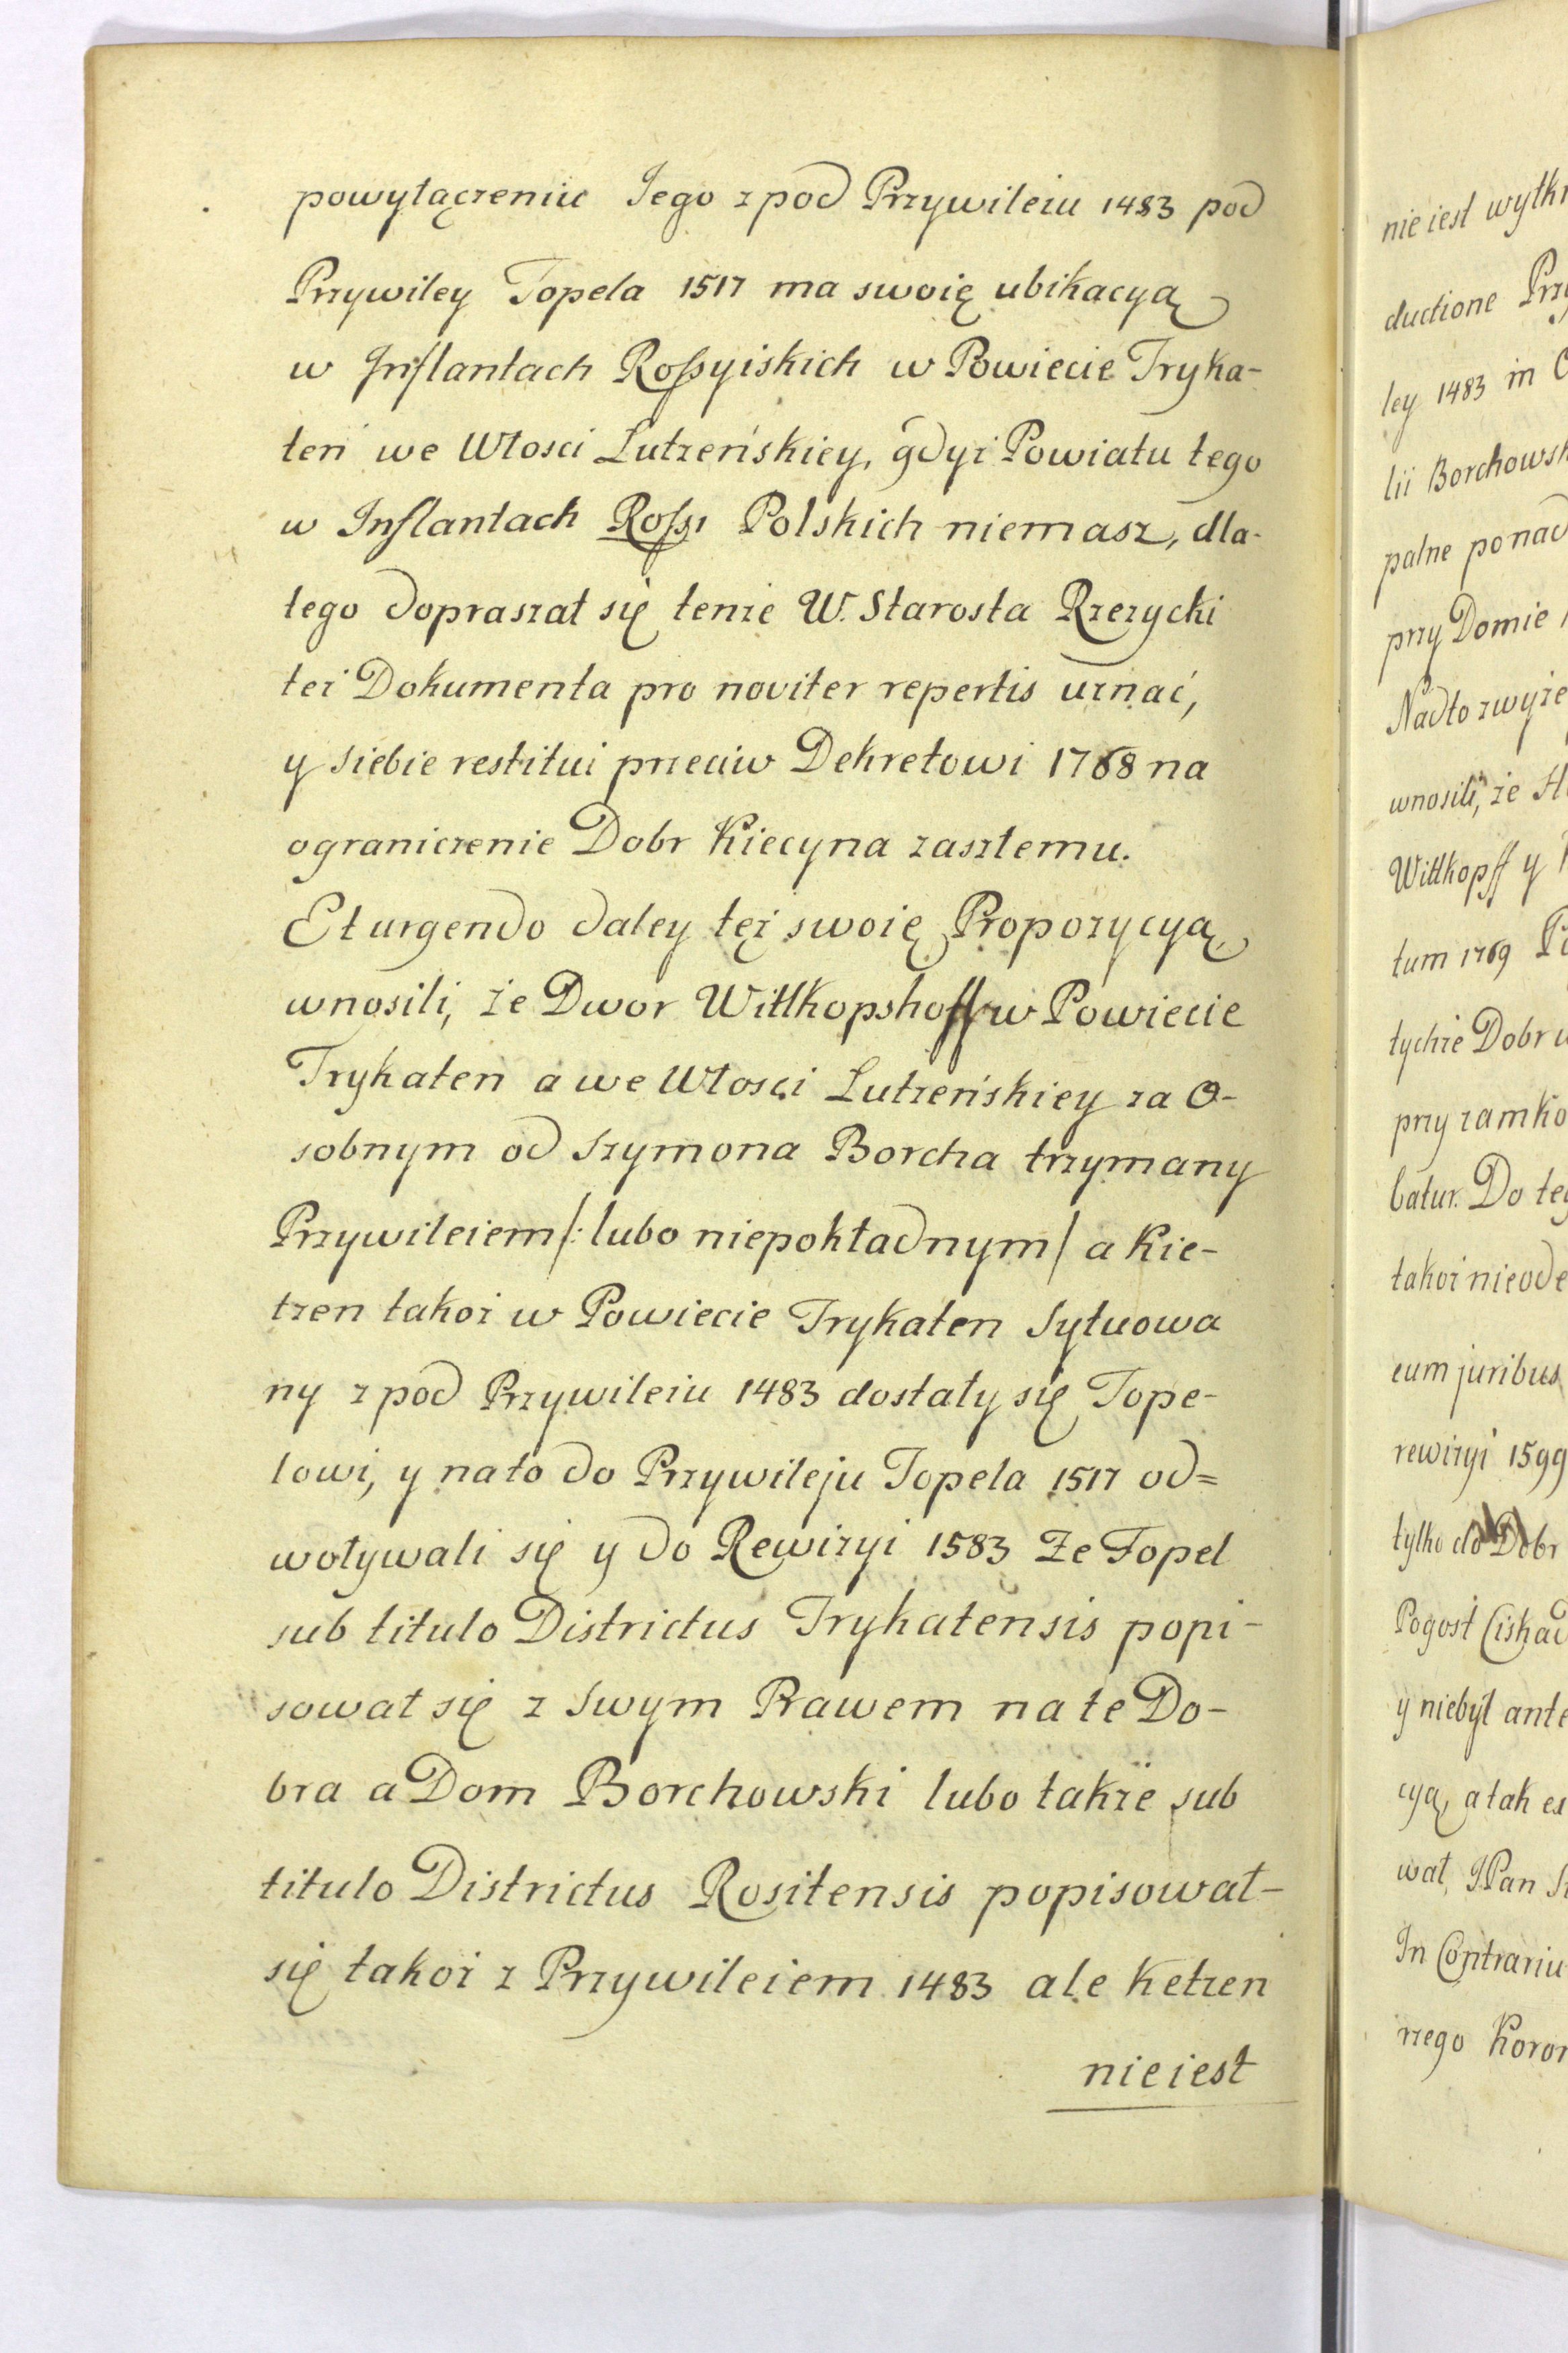 powyłączeniu Jego z pod Przywileiu 1483 pod
Przywiley Topela 1517 ma swoię ubikacyą
w Inflantach Rossyiskich w Powiecie Tryka-
teń we Włosci Lutzeńskiey, gdyż Powiatu tego
w Inflantach Ross: Polskich niemasz, dla-
tego dopraszał się tenże W. Starosta Rzezycki
też Dokumenta pro noviter repertis uznać,
y siebie restitui przeciw Dekretowi 1768 na
ograniczenie Dobr Kiecyna zaszłemu.
Et urgendo daley też swoię Propozycyą
wnosili, że Dwor Wittkopshoff w Powiecie
Trykaten a we Włosci Lutzeńskiey za O-
sobnym od Szymona Borcha trzymany
Przywileiem/: lubo niepokładnym/ a Kie-
tzen takoż w Powiecie Trykaten Sytuowa
ny z pod Przywileiu 1483 dostały się Tope-
lowi, y na to do Przywileju Topela 1517 od=
wotywali się y do Rewizyi 1583 Że Topel
sub titulo Districtus Trykatensis popi-
sował się z Swym Prawem na te Do-
bra a Dom Borchowski lubo także sub
titulo Districtus Rositensis popisował-
się takoż z Przywileiem 1483 ale Ketzen
nie iest
nie iest
ductione
ley 1483 in
lii
palne
przy Domie
Nadto zwyże
wnosili, że
Wittkopff y
tum 1769
tychże Dobr
przy zamko
batur. Do
takoż
eum juribus
rewizyi 1599
tylko do Dobr
Pogost
y niebył
cyą, a tak
wał, JPan
In
rzego